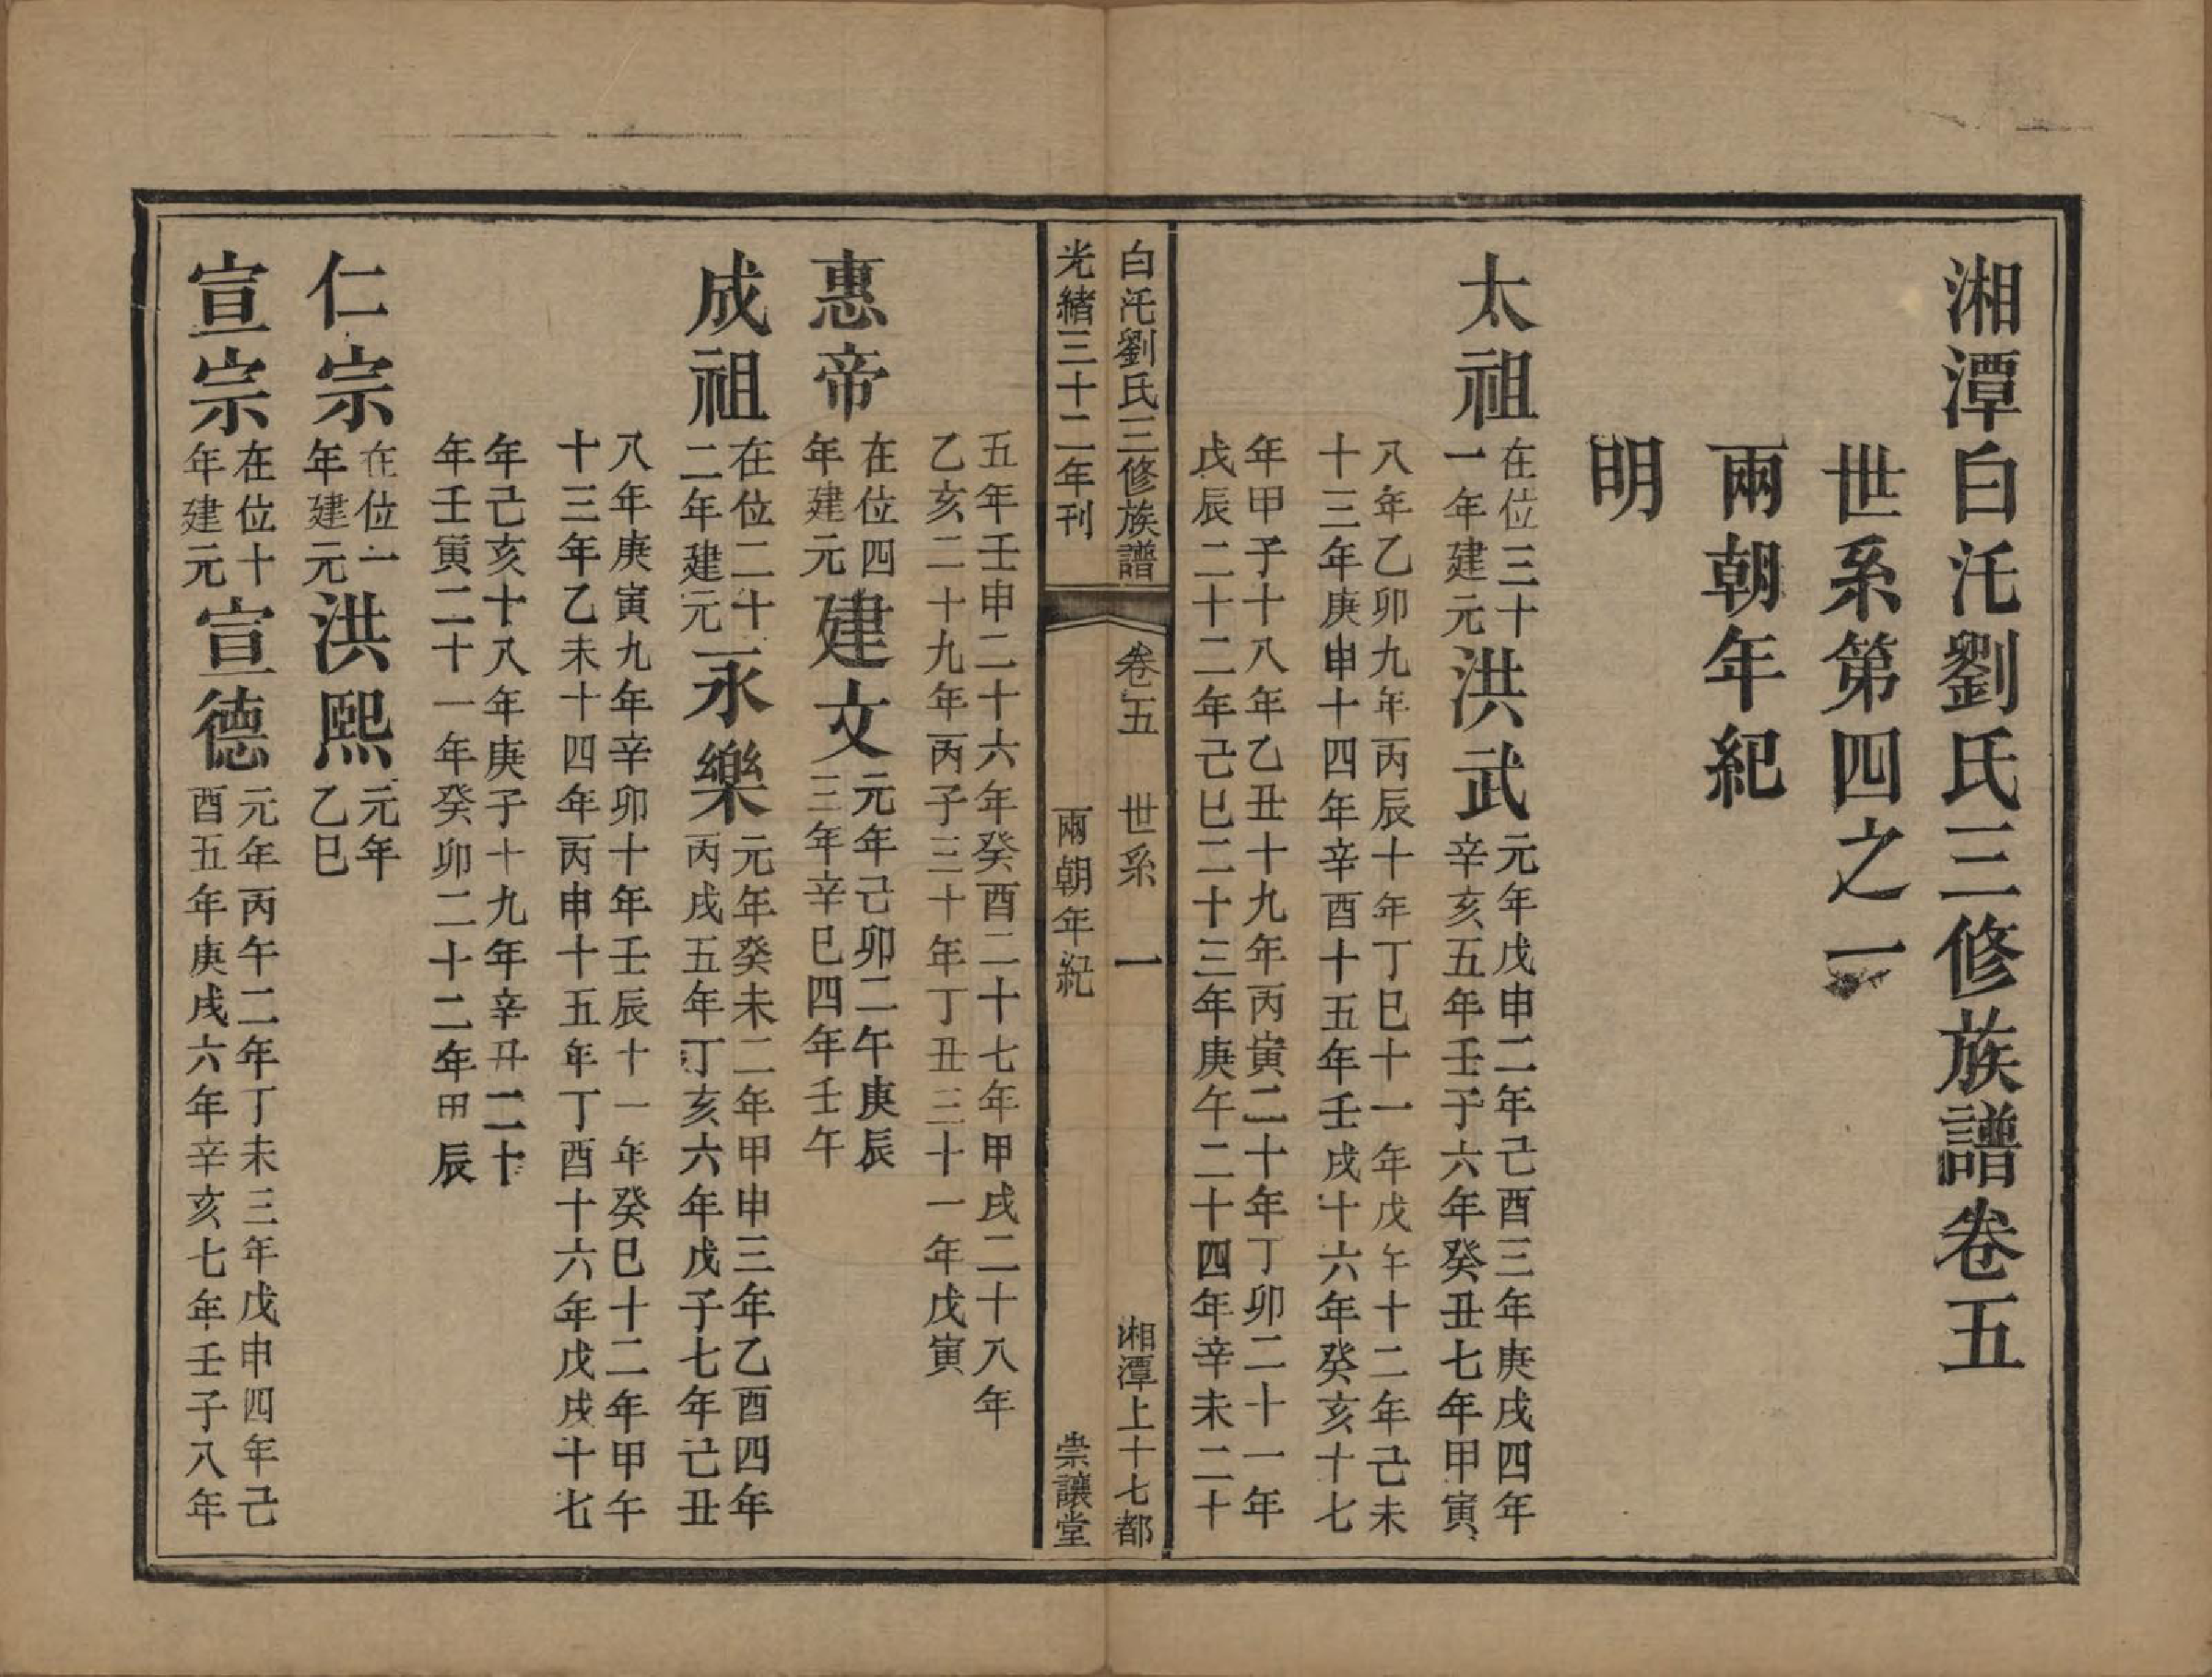 湘潭白汑劉氏三修族譜卷五
世系第四之一
兩朝年紀
明
太祖
在位三十
一年建元
洪武
元年戊申二年己酉三年庚戌四年
辛亥五年壬子六年癸丑七年甲寅
八年乙卯九年丙辰十年丁巳十一年戊午十二年己未
十三年庚申十四年辛酉十五年壬戌十六年癸亥十七
年甲子十八年乙丑十九年丙寅二十年丁卯二十一年
戊辰二十二年己巳二十三年庚午二十四年辛未二十
白汑劉氏三修族譜 卷五 世系 一 湘潭上十七都
光緒三十二年刊 兩朝年紀 崇讓堂
五年壬申二十六年癸酉二十七年甲戌二十八年
乙亥二十九年丙子三十年丁丑三十一年戊寅
惠帝
在位四
年建元
建文
元年己卯二午庚辰
三年辛巳四年壬午
成祖
在位二十
二年建元
永樂
元年癸未二年甲申三年乙酉四年
丙戌五年丁亥六年戊子七年己丑
八年庚寅九年辛卯十年壬辰十一年癸巳十二年甲午
十三年乙未十四年丙申十五年丁酉十六年戊戌十七
年己亥十八年庚子十九年辛丑二十
年壬寅二十一年癸卯二十二年甲辰
仁宗
在位一
年建元
洪熙
元年
乙巳
宣宗
在位十
年建元
宣德
元年丙午二年丁未三年戊申四年己
酉五年庚戌六年辛亥七年壬子八年